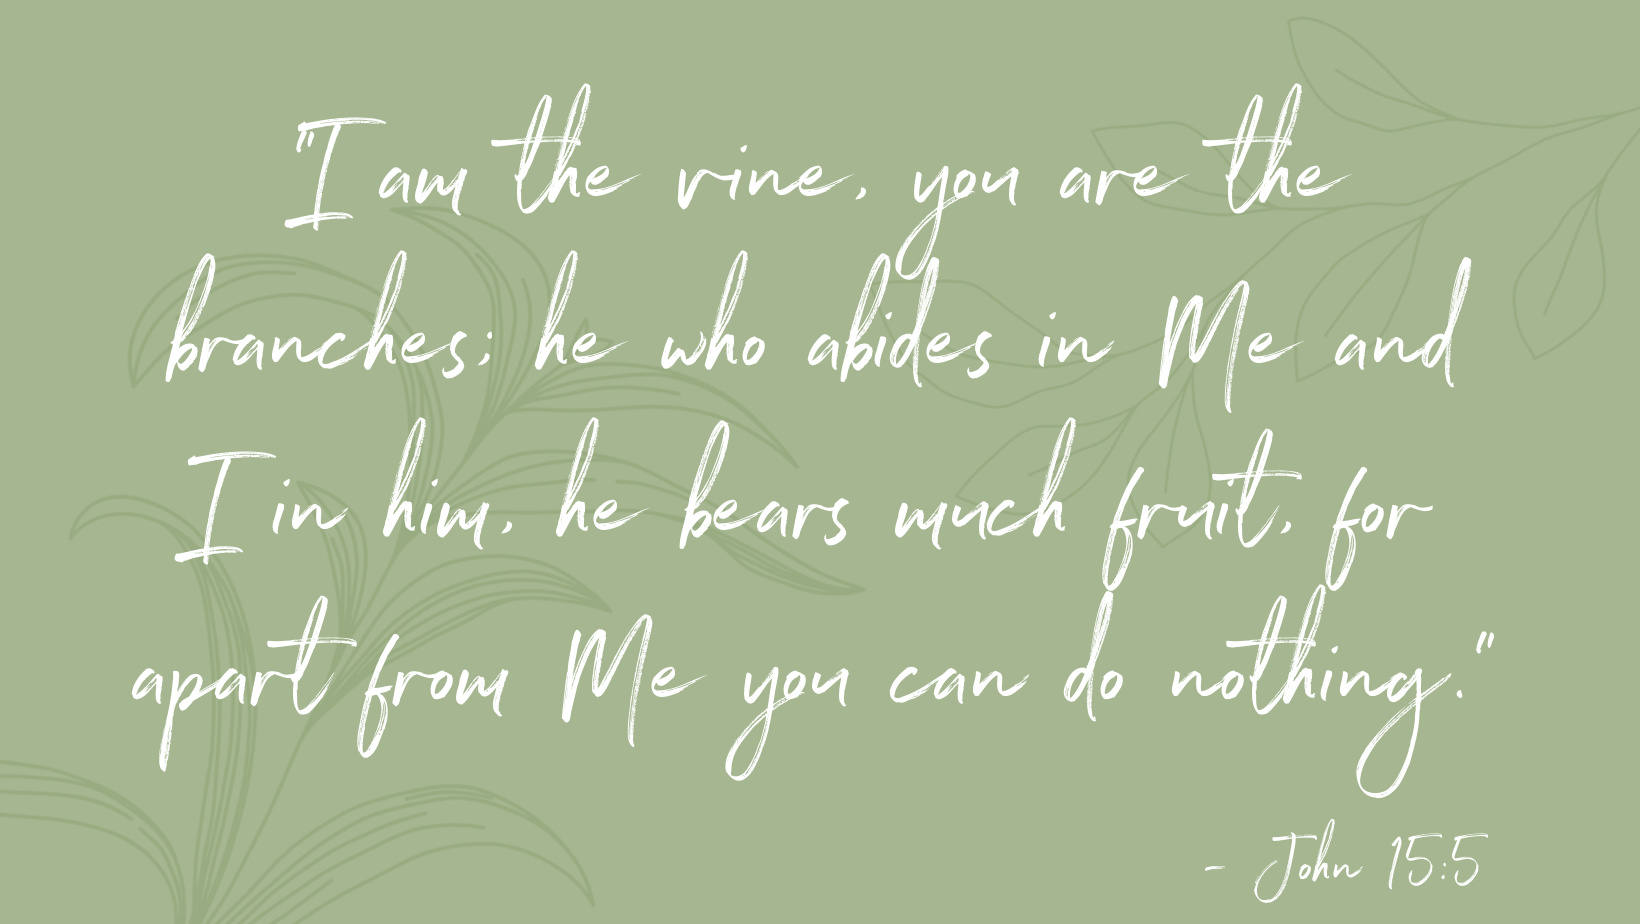 "I am the vine, you are the
branches; he who abides in Me and
I in him, he bears much fruit, for
apart from Me you can do nothing."
- John 15:5